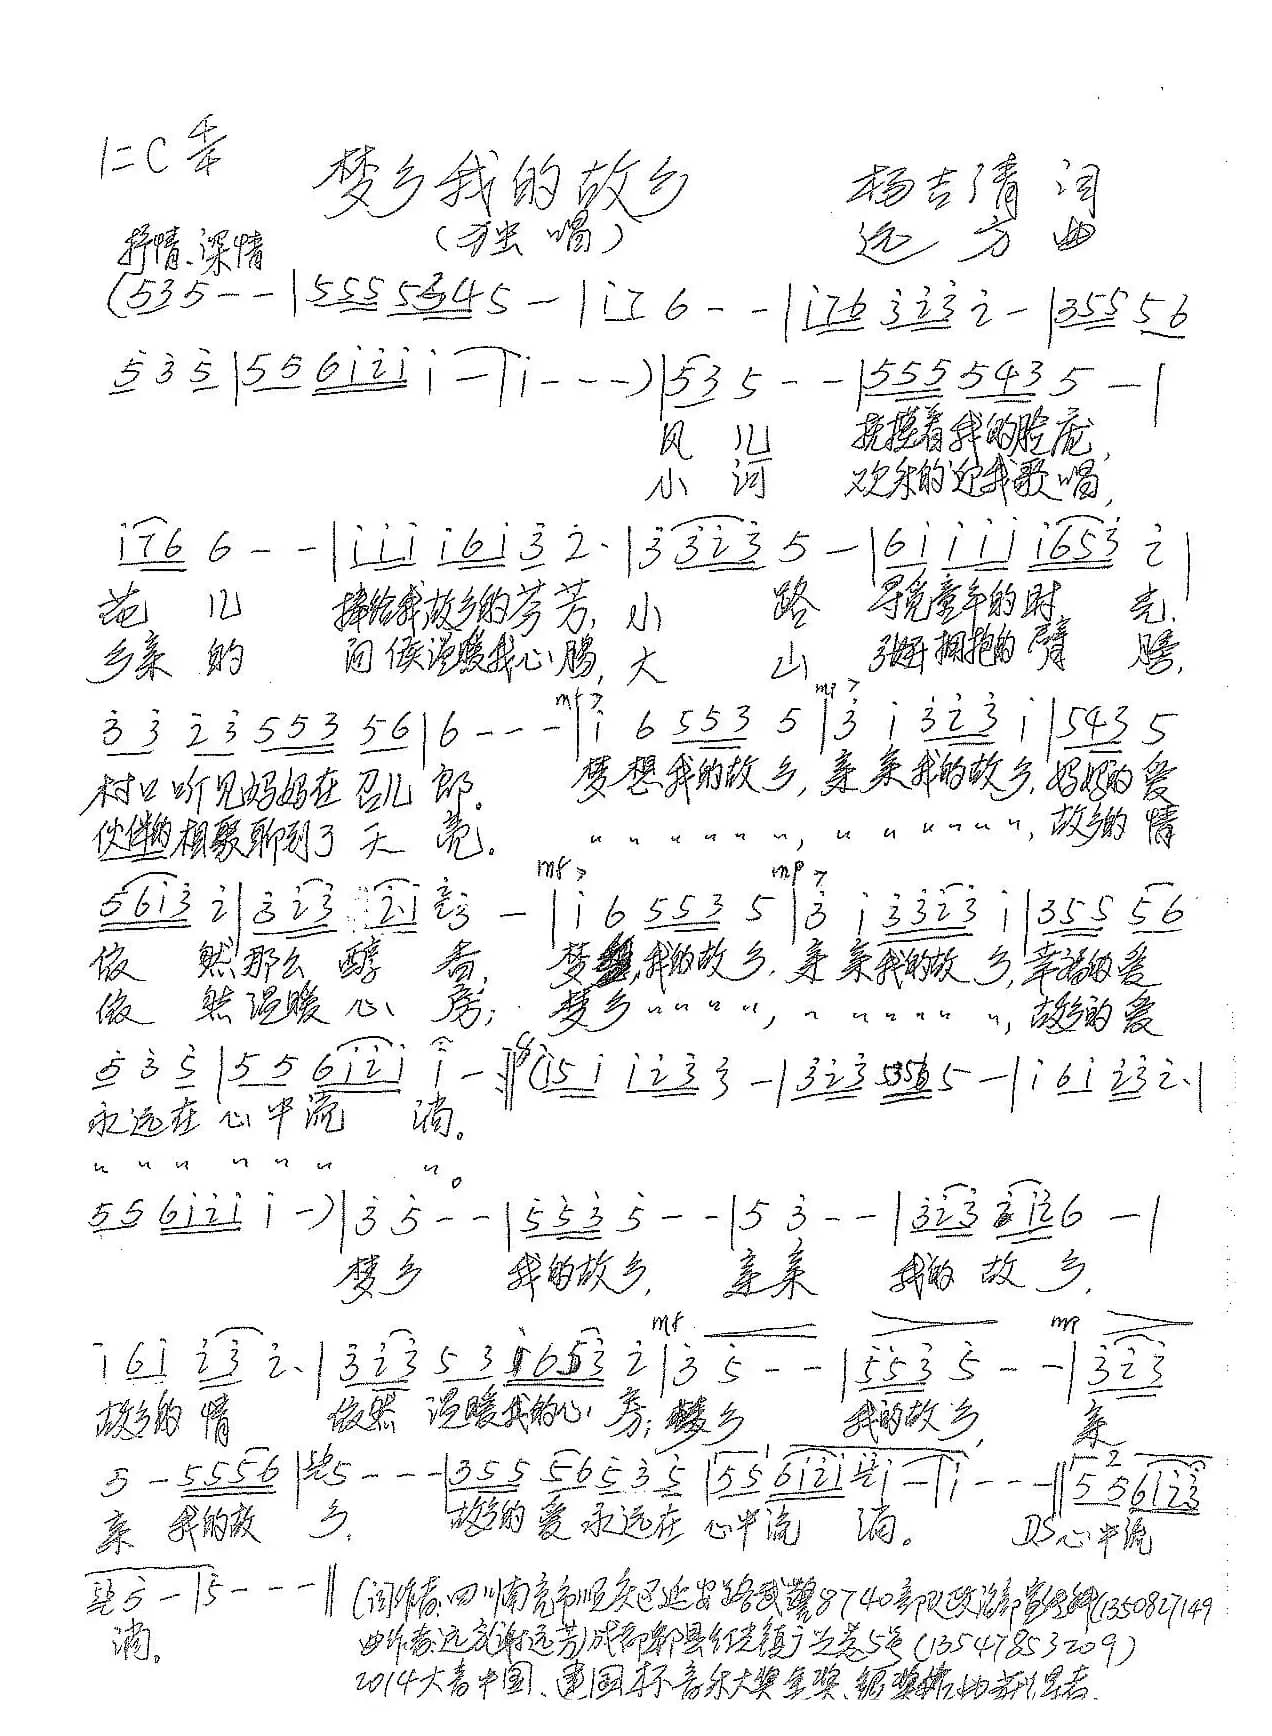 1=C 4/4
梦乡我的故乡
杨吉清 词
(独唱)
远方 曲
抒情、深情
(535--|5555345-|i76--|i76323i-|35556
535|556i2ii-|i---)|535--|5555435-|
风儿 抚摸着我的脸庞,
小河 欢乐的迎我歌唱,
i766--|iiii6i32·|33235-|6iiii653i|
花儿 捧给我故乡的芬芳,小路 寻觅童年的时光.
乡亲的 问候温暖我心肠,大山 张开拥抱的臂膀,
332355356|6---|i65535|3i323i|5435
mf> mp>
村口听见妈妈在召儿郎。 梦想我的故乡,亲亲我的故乡,妈妈的爱
伙伴的相聚聊到了天亮。 〃〃〃〃〃〃,〃〃〃〃〃〃,故乡的情
mf> mp>
56i32|3232·i23-|i65535|3i3323i|35556
依然那么醇香, 梦,我的故乡.亲亲我的故乡,幸福的爱
依然温暖心房; 梦乡〃〃〃〃,〃〃〃〃〃〃,故乡的爱
535|556i2ii-:‖(i5ii233-|32353565-|i6i232·|
永远在心中流淌。
〃〃〃〃〃〃 〃。
556i2ii-)|35--|5535--|53--|3233i26-|
梦乡 我的故乡, 亲亲 我的故乡,
mf mp
i6i232·|32353i6532|35--|5535--|323
故乡的情 依然温暖我的心房;梦乡 我的故乡, 亲
5-5556|5---|35556535|556i2ii-|i---‖556i23
亲我的故乡, 故乡的爱永远在心中流淌。 D.S心中流
5-|5---‖
淌。
(词作者:四川南充市顺庆区延安路武警8740部队政治部(1350827149
曲作者:远方(谢远芳)成都郫县红光镇广兰巷5号(13547853209)
2014大音中国、建国杯音乐大奖金奖、